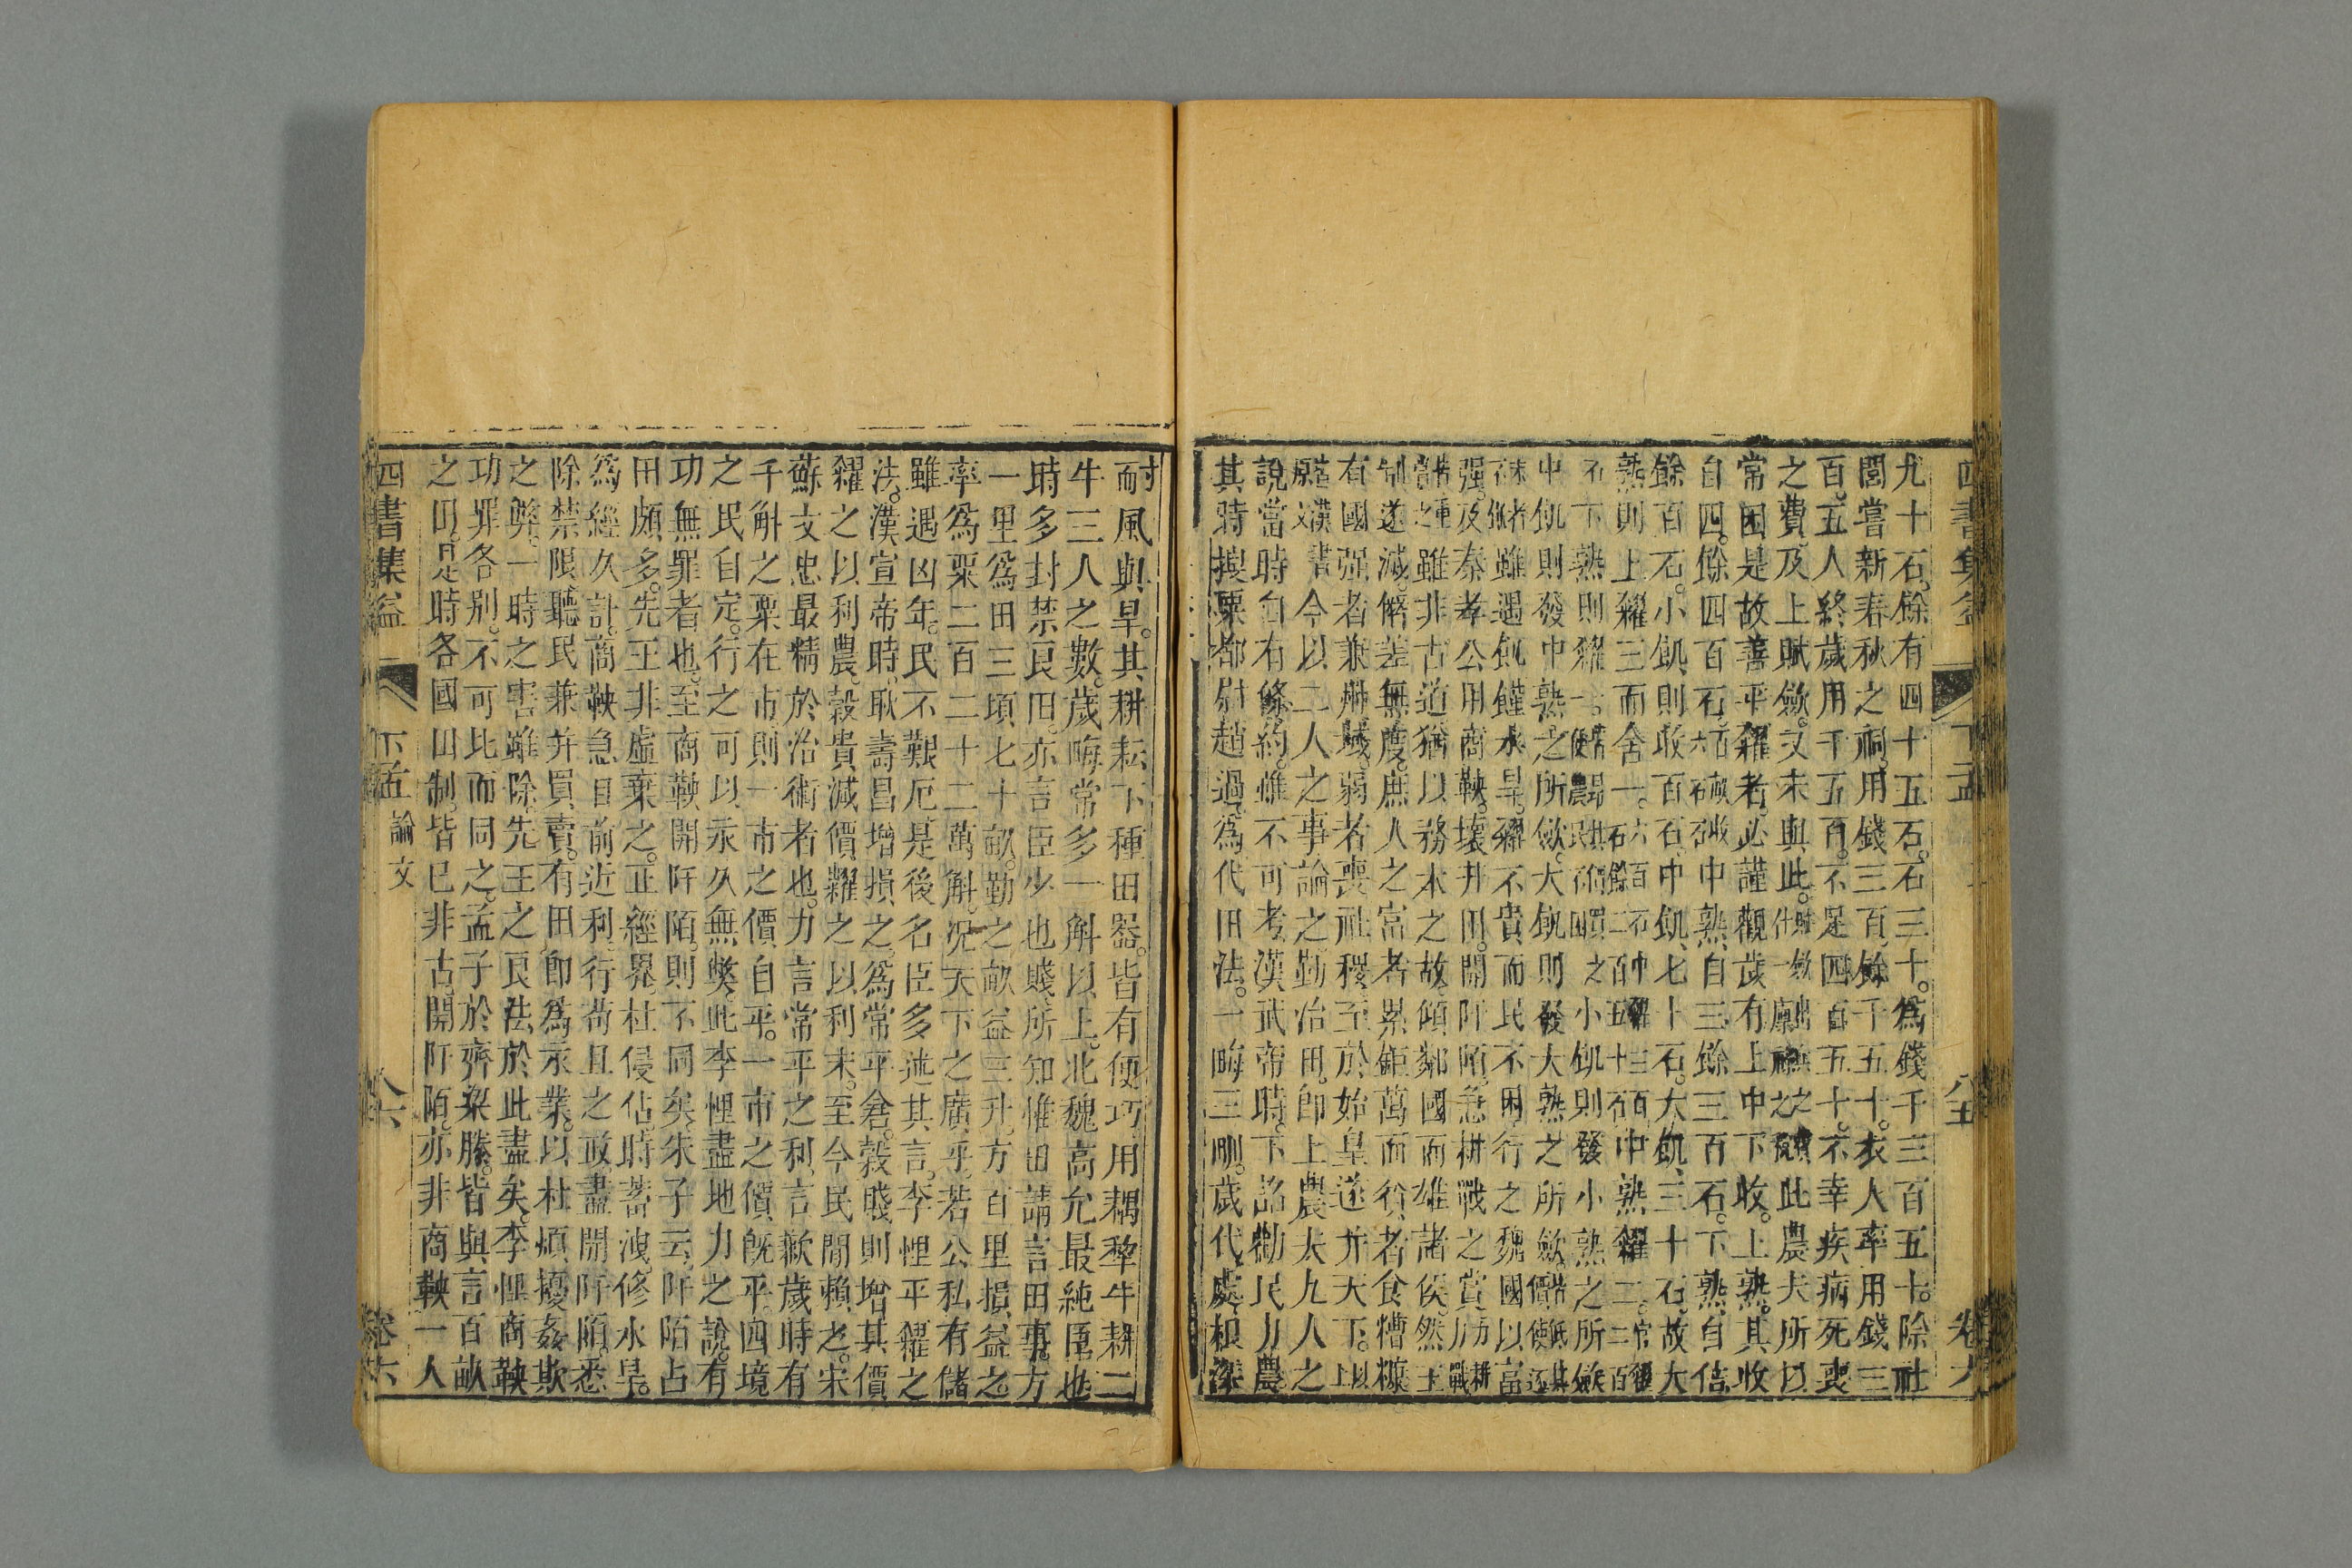 四書集益
下孟
八五
卷六
九十石餘有四十五石石三十爲錢千三百五十除社
閭嘗新春秋之祠用錢三百餘千五十衣人率用錢三
百五人終歲用千五百不足四百五十不幸疾病死喪
之費及上賦歛又未與此此農夫所以
常困是故善平糴者必謹觀歲有上中下收上熟其收
自四餘四百石中熟自三餘三百石下熟自倍
餘百石小飢則收百石中飢七十石大飢三十石故大
熟則上糴三而舍一中熟糴二
下熟則糴一之小飢則發小熟之所歛
中飢則發中熟之所歛大飢則發大熟之所歛
雖遇飢饉水旱糴不貴而民不困行之魏國以富
强及秦孝公用商鞅壞井田開阡陌急耕戰之賞
雖非古道猶以務本之故傾鄰國而雄諸侯然王
制遂滅僭差無度庶人之富者累鉅萬而貧者食糟糠
有國强者兼州域弱者喪社稷至於始皇遂并天下
漢書今以二人之事論之勤治田卽上農夫九人之
說當時自有條約雖不可考漢武帝時下詔勸民力農
其時搜粟都尉趙過爲代田法一畮三甽歲代處根深
而風與旱其耕耘下種田器皆有便巧用耦犂牛耕二
牛三人之數歲畮常多一斛以上北魏高允最純臣也
時多封禁良田亦言臣少也賤所知惟田請言田事方
一里爲田三頃七十畝勤之畝益三升方百里損益之
率爲粟二百二十二萬斛況天下之廣乎若公私有儲
雖遇凶年民不艱厄是後名臣多述其言李悝平糴之
法漢宣帝時耿壽昌增損之爲常平倉穀賤則增其價
糴之以利農穀貴減價糶之以利末至今民間賴之宋
蘇文忠最精於治術者也力言常平之利言歉歲時有
千斛之粟在市則一市之價自平一市之價旣平四境
之民自定行之可以永久無獘此李悝盡地力之說有
功無罪者也至商鞅開阡陌則不同矣朱子云阡陌占
田頗多先王非虛棄之正經界杜侵佔時蓄洩修水旱
爲經久計商鞅急目前近利行苟且之政盡開阡陌悉
除禁限聽民兼并買賣有田卽爲永業以杜煩擾姦欺
之弊一時之害雖除先王之良法於此盡矣李悝商鞅
功罪各別不可比而同之孟子於齊梁滕皆與言百畝
之田是時各國田制皆已非古開阡陌亦非商鞅一人
四書集益
下孟
論文
八六
卷六